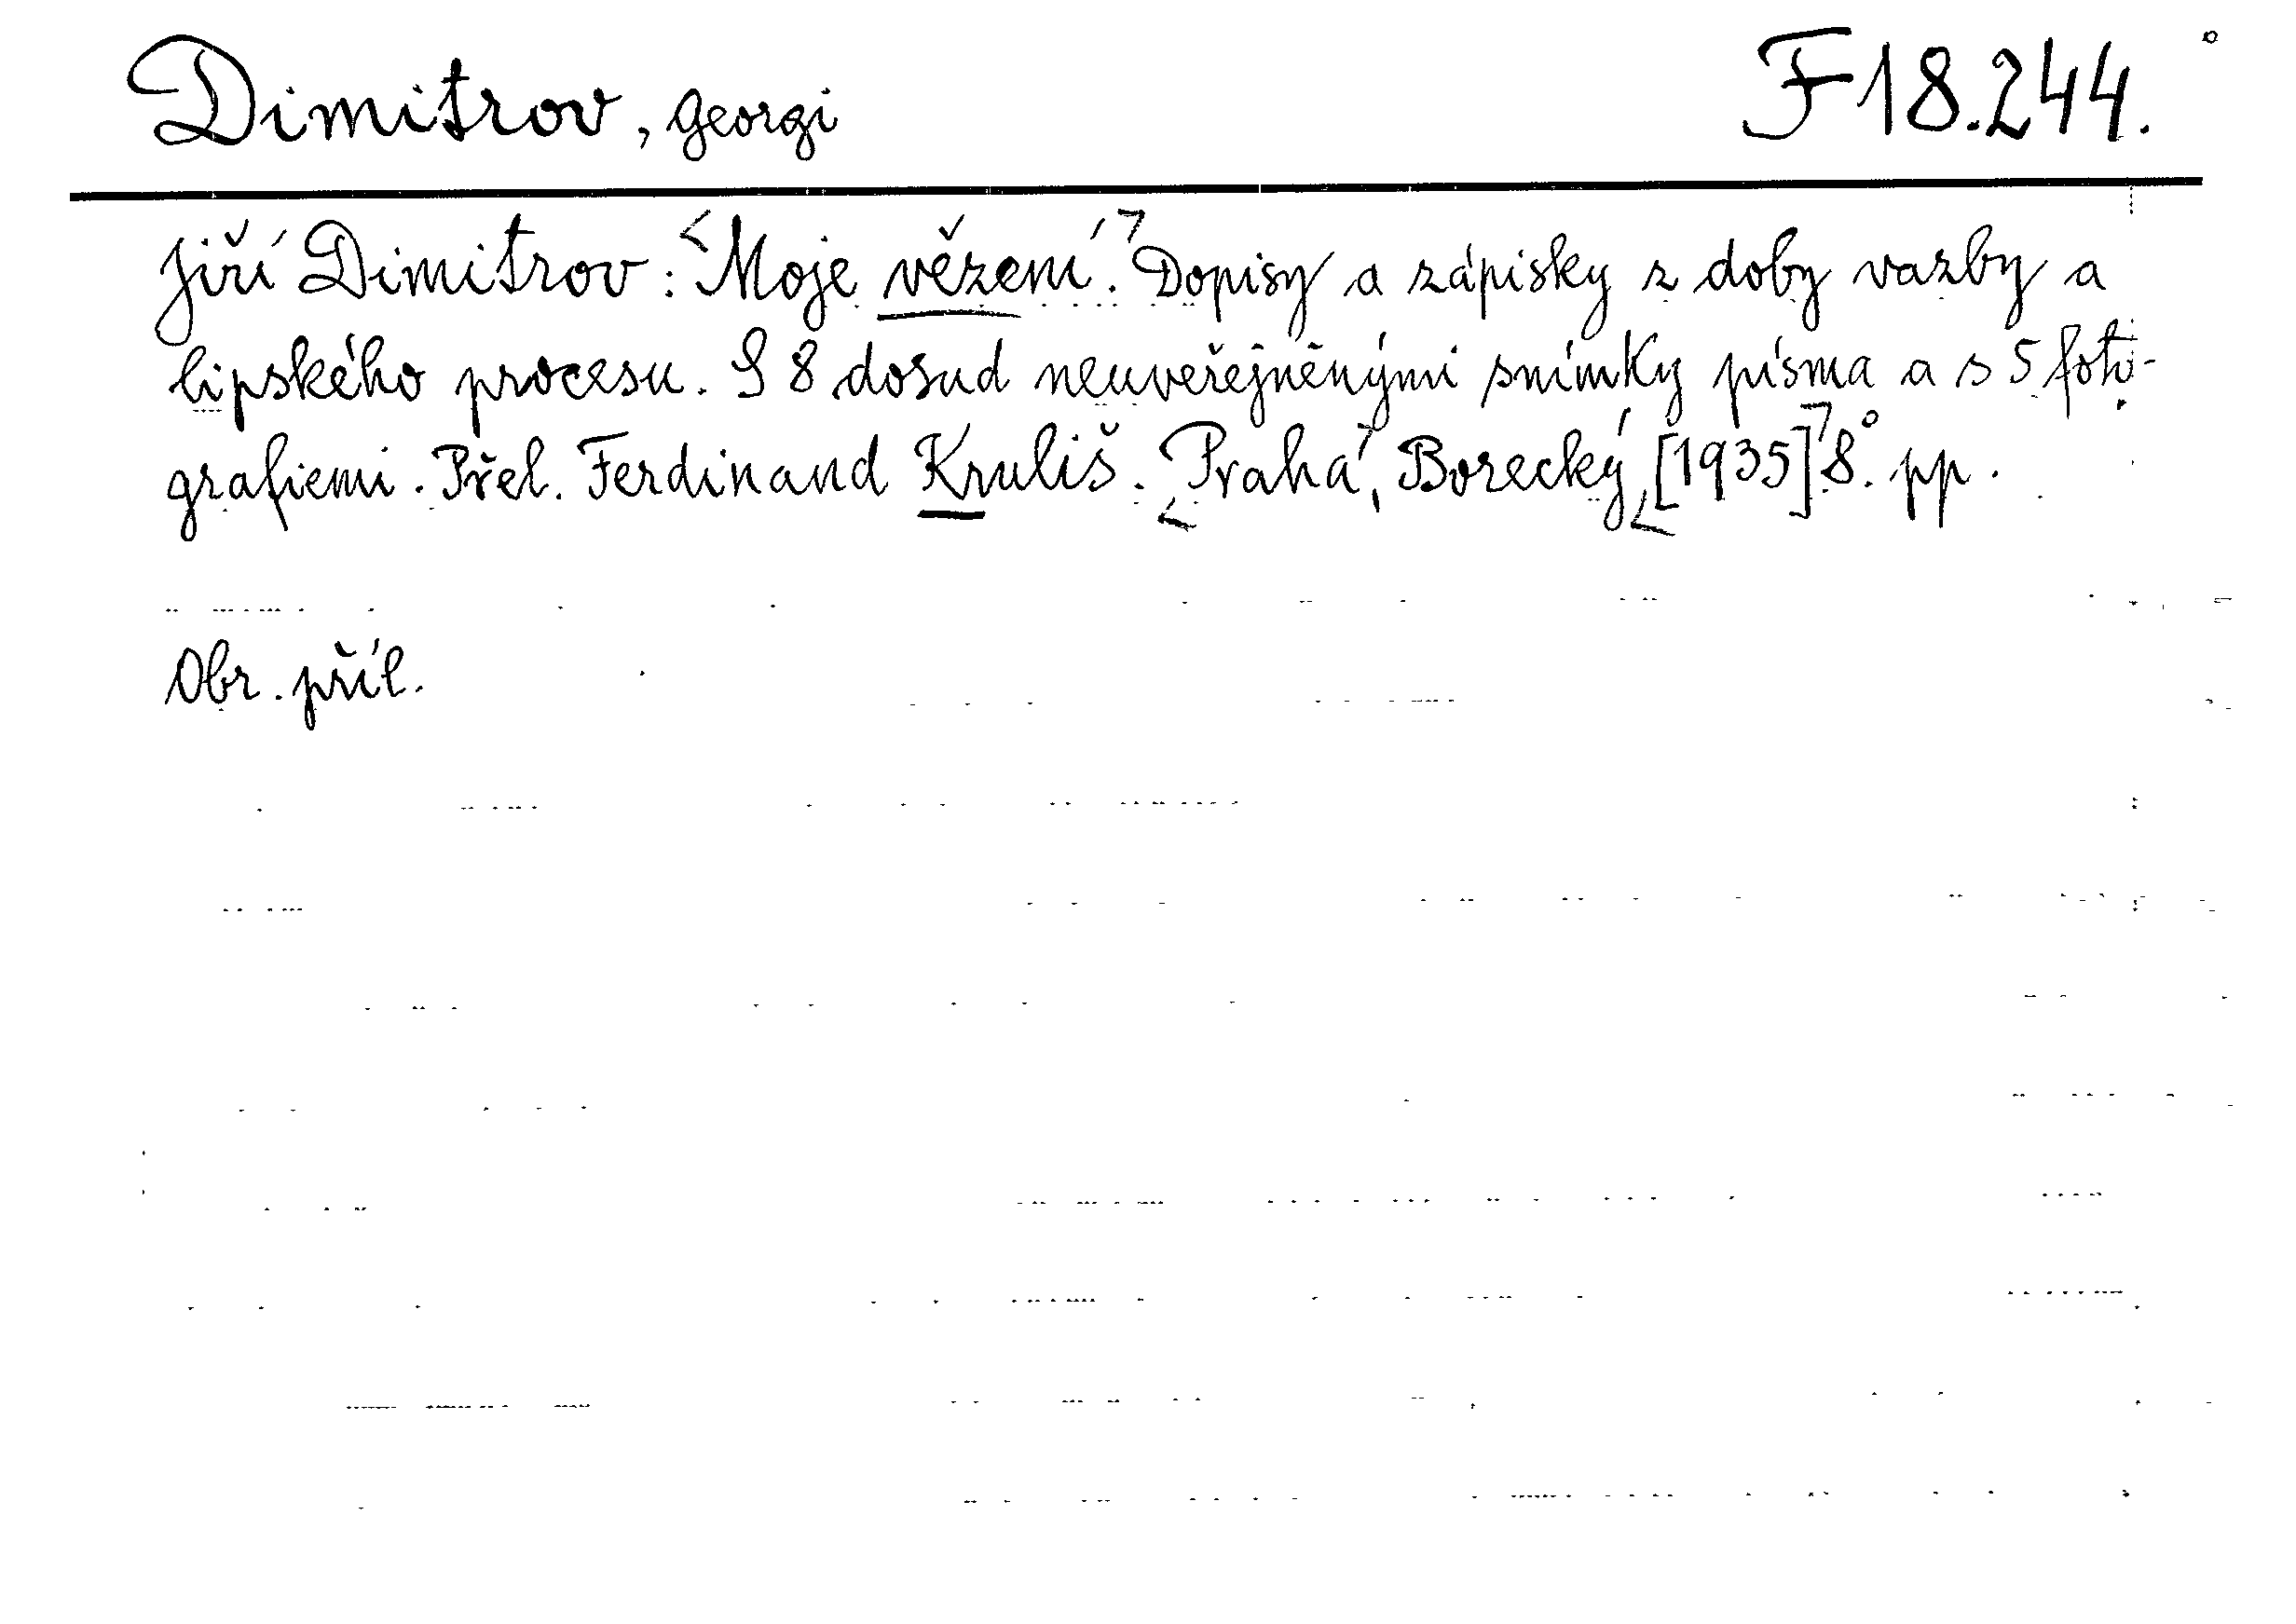 Dimitrov, Georgi F 18.244.
Jiří Dimitrov: <Moje vězení.> Dopisy a zápisky z doby vazby a
lipského procesu. S 8 dosud neuveřejněnými snímky písma a s 5 foto-
grafiemi. Přel. Ferdinand Kruliš. <Praha>, Borecký, <[1935]> 8°. pp.
Obr. příl.